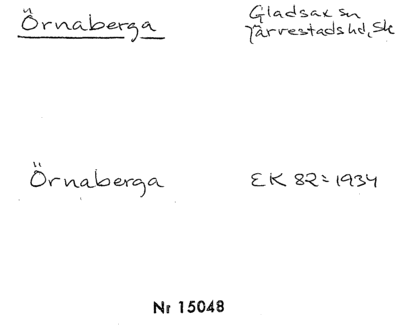 Örnaberga
Gladsax sn
Järrestads hd, Sk
Örnaberga
EK 82 = 1934
Nr 15048